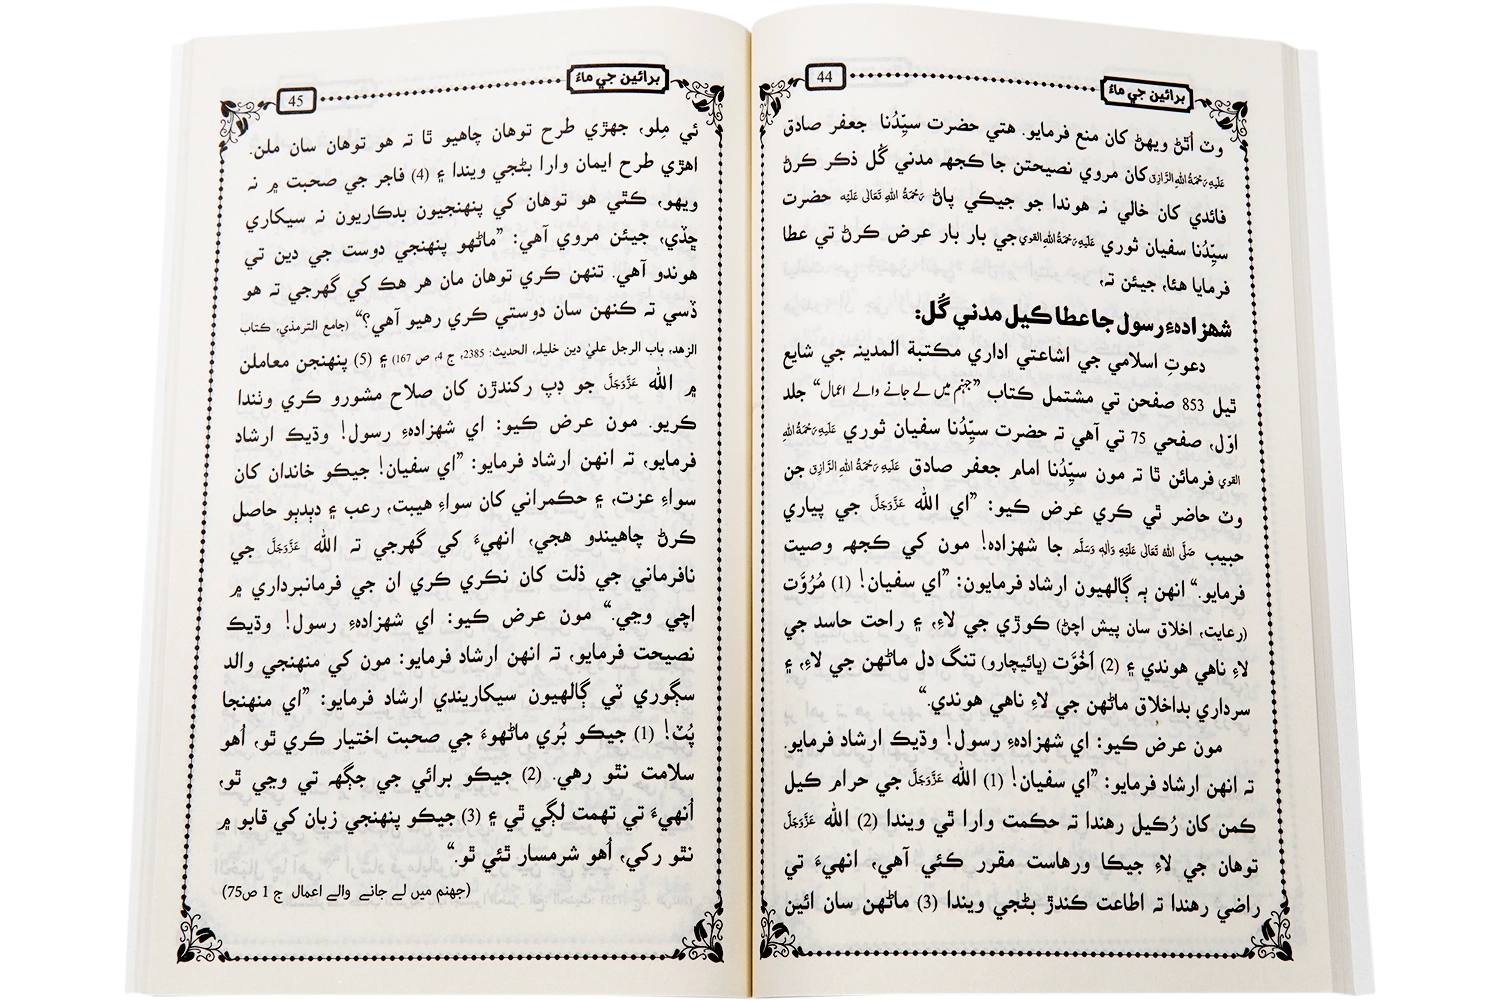 44
برائين جي ماءُ
وٽ اُٿڻ ويهڻ کان منع فرمايو. هتي حضرت سيِّدُنا جعفر صادق
عَلَيْهِ رَحْمَةُ اللهِ الرَّازِق کان مروي نصيحتن جا ڪجهہ مدني گُل ذڪر ڪرڻ
فائدي کان خالي نہ هوندا جو جيڪي پاڻ رَحْمَةُ اللهِ تَعَالٰی عَلَيْه حضرت
سيِّدُنا سفيان ثوري عَلَيْهِ رَحْمَةُ اللهِ القوی جي بار بار عرض ڪرڻ تي عطا
فرمايا هئا، جيئن تہ،
شهزادهءِ رسول جا عطا ڪيل مدني گُل:
دعوتِ اسلامي جي اشاعتي اداري مڪتبة المدينہ جي شايع
ٿيل 853 صفحن تي مشتمل ڪتاب ”جہنم میں لے جانے والے اعمال“ جلد
اوّل، صفحي 75 تي آهي تہ حضرت سيِّدُنا سفيان ثوري عَلَيْهِ رَحْمَةُ اللهِ
القوی فرمائن ٿا تہ مون سيِّدُنا امام جعفر صادق عَلَيْهِ رَحْمَةُ اللهِ الرَّازِق جن
وٽ حاضر ٿي ڪري عرض ڪيو: ”اي الله عَزَّوَجَلَّ جي پياري
حبيب صَلَّی اللهُ تَعَالٰی عَلَيْهِ وَاٰلِهٖ وَسَلَّم جا شهزاده! مون کي ڪجهہ وصيت
فرمايو.“ انهن ٻہ ڳالهيون ارشاد فرمايون: ”اي سفيان! (1) مُرُوَّت
(رعايت، اخلاق سان پيش اچڻ) ڪوڙي جي لاءِ، ۽ راحت حاسد جي
لاءِ ناهي هوندي ۽ (2) اَخُوَّت (ڀائيچارو) تنگ دل ماڻهن جي لاءِ، ۽
سرداري بداخلاق ماڻهن جي لاءِ ناهي هوندي.“
مون عرض ڪيو: اي شهزادهءِ رسول! وڌيڪ ارشاد فرمايو.
تہ انهن ارشاد فرمايو: ”اي سفيان! (1) الله عَزَّوَجَلَّ جي حرام ڪيل
ڪمن کان رُڪيل رهندا تہ حڪمت وارا ٿي ويندا (2) الله عَزَّوَجَلَّ
توهان جي لاءِ جيڪا ورهاست مقرر ڪئي آهي، انهيءَ تي
راضي رهندا تہ اطاعت ڪندڙ بڻجي ويندا (3) ماڻهن سان ائين
45
برائين جي ماءُ
ئي مِلو، جهڙي طرح توهان چاهيو ٿا تہ هو توهان سان ملن.
اهڙي طرح ايمان وارا بڻجي ويندا ۽ (4) فاجر جي صحبت ۾ نہ
ويهو، ڪٿي هو توهان کي پنهنجيون بدڪاريون نہ سيکاري
ڇڏي، جيئن مروي آهي: ”ماڻهو پنهنجي دوست جي دين تي
هوندو آهي. تنهن ڪري توهان مان هر هڪ کي گهرجي تہ هو
ڏسي تہ ڪنهن سان دوستي ڪري رهيو آهي؟“ (جامع الترمذي، کتاب
الزهد، باب الرجل عليٰ دين خليلہ، الحديث: 2385، ج 4، ص 167) ۽ (5) پنهنجن معاملن
۾ الله عَزَّوَجَلَّ جو ڊپ رکندڙن کان صلاح مشورو ڪري وٺندا
ڪريو. مون عرض ڪيو: اي شهزادهءِ رسول! وڌيڪ ارشاد
فرمايو، تہ انهن ارشاد فرمايو: ”اي سفيان! جيڪو خاندان کان
سواءِ عزت، ۽ حڪمراني کان سواءِ هيبت، رعب ۽ دٻدٻو حاصل
ڪرڻ چاهيندو هجي، انهيءَ کي گهرجي تہ الله عَزَّوَجَلَّ جي
نافرماني جي ذلت کان نڪري ڪري ان جي فرمانبرداري ۾
اچي وڃي.“ مون عرض ڪيو: اي شهزادهءِ رسول! وڌيڪ
نصيحت فرمايو، تہ انهن ارشاد فرمايو: مون کي منهنجي والد
سڳوري ٽي ڳالهيون سيکاريندي ارشاد فرمايو: ”اي منهنجا
پُٽ! (1) جيڪو بُري ماڻهوءَ جي صحبت اختيار ڪري ٿو، اُهو
سلامت نٿو رهي. (2) جيڪو برائي جي جڳهہ تي وڃي ٿو،
اُنهيءَ تي تهمت لڳي ٿي ۽ (3) جيڪو پنهنجي زبان کي قابو ۾
نٿو رکي، اُهو شرمسار ٿئي ٿو.“
(جهنم میں لے جانے والے اعمال ج 1 ص75)